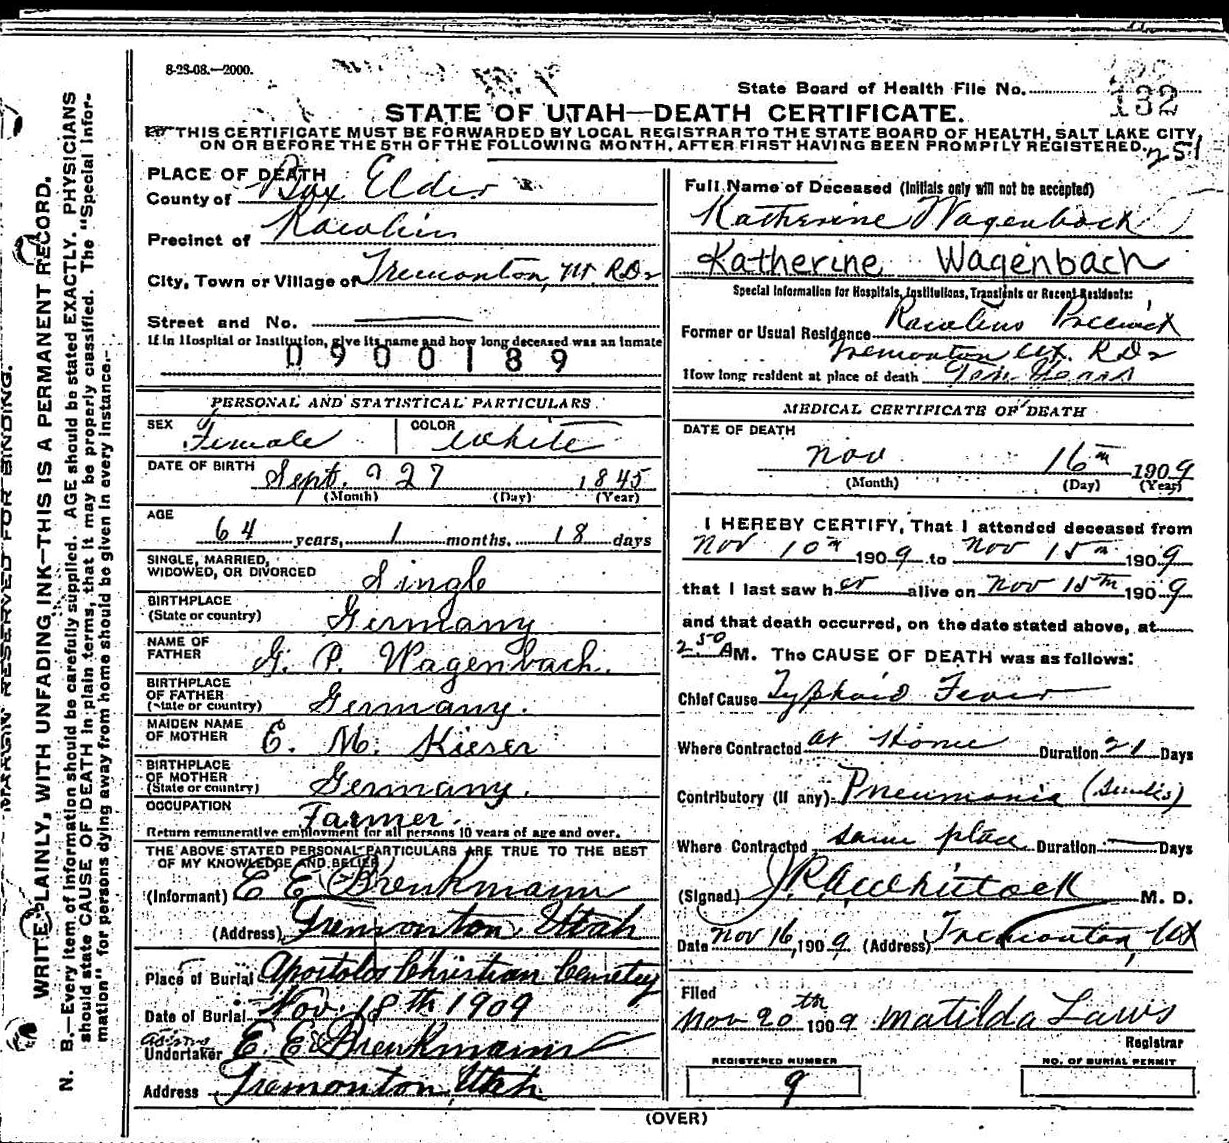 8-28-08.—2000.
State Board of Health File No. 132
STATE OF UTAH—DEATH CERTIFICATE.
THIS CERTIFICATE MUST BE FORWARDED BY LOCAL REGISTRAR TO THE STATE BOARD OF HEALTH, SALT LAKE CITY,
ON OR BEFORE THE 5TH OF THE FOLLOWING MONTH, AFTER FIRST HAVING BEEN PROMPTLY REGISTERED.
251
MARGIN RESERVED FOR BINDING.
WRITE PLAINLY, WITH UNFADING INK—THIS IS A PERMANENT RECORD.
N. B.—Every item of information should be carefully supplied. AGE should be stated EXACTLY. PHYSICIANS
should state CAUSE OF DEATH in plain terms, that it may be properly classified. The "Special Infor-
mation" for persons dying away from home should be given in every instance.
PLACE OF DEATH
County of Box Elder
Precinct of
City, Town or Village of Tremonton,
Street and No.
If in Hospital or Institution, give its name and how long deceased was an inmate
0900189
PERSONAL AND STATISTICAL PARTICULARS.
SEX Female COLOR White
DATE OF BIRTH Sept. 27 1845
(Month) (Day) (Year)
AGE
64 years, 1 months, 18 days
SINGLE, MARRIED,
WIDOWED, OR DIVORCED Single
BIRTHPLACE
(State or country) Germany
NAME OF
FATHER G. P. Wagenbach.
BIRTHPLACE
OF FATHER
(State or country) Germany.
MAIDEN NAME
OF MOTHER E. M. Kieser
BIRTHPLACE
OF MOTHER
(State or country) Germany.
OCCUPATION Farmer.
Return remunerative employment for all persons 10 years of age and over.
THE ABOVE STATED PERSONAL PARTICULARS ARE TRUE TO THE BEST
OF MY KNOWLEDGE AND BELIEF
(Informant) E E Brenkmann
(Address) Tremonton Utah
Place of Burial Apostolic Christian Cemetry
Date of Burial Nov. 18th 1909
Undertaker E. E. Brenkmann
Address Tremonton, Utah
Full Name of Deceased (Initials only will not be accepted)
Katherine Wagenback
Katherine Wagenbach
Special Information for Hospitals, Institutions, Transients or Recent Residents:
Former or Usual Residence
Tremonton
How long resident at place of death Ten Years
MEDICAL CERTIFICATE OF DEATH
DATE OF DEATH
Nov 16th 1909
(Month) (Day) (Year)
I HEREBY CERTIFY, That I attended deceased from
Nov 10th 1909 to Nov 15th 1909
that I last saw her alive on Nov 15th 1909
and that death occurred, on the date stated above, at
2:50 AM. The CAUSE OF DEATH was as follows:
Chief Cause Typhoid Fever
Where Contracted at Home Duration 21 Days
Contributory (if any) Pneumonia
Where Contracted same place Duration — Days
(Signed) M. D.
Date Nov 16, 1909 (Address) Tremonton, Ut
Filed
Nov 20th 1909 Matilda Laws
Registrar
REGISTERED NUMBER
9
NO. OF BURIAL PERMIT
(OVER)